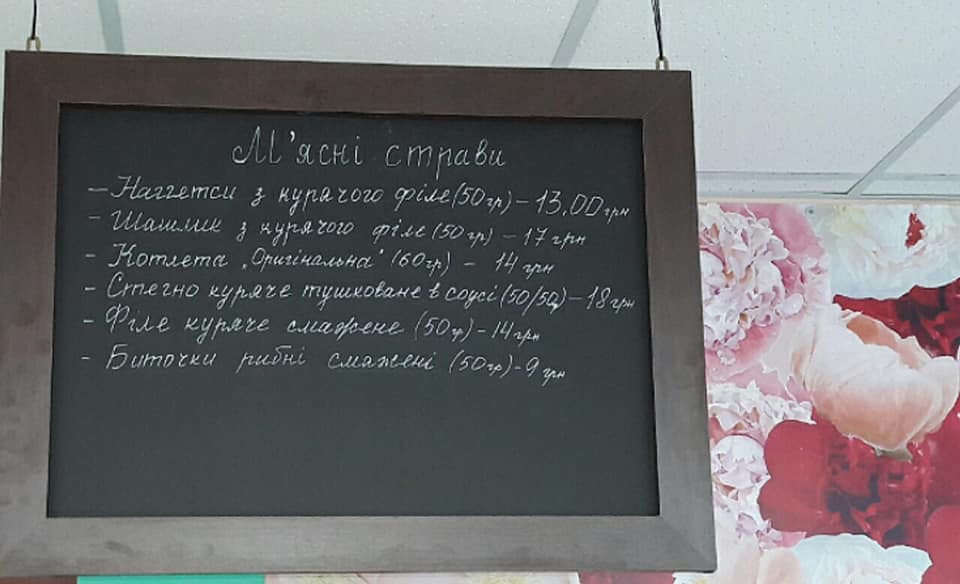 М'ясні страви
- Наггетси з курячого філе (50 гр) - 13,00 грн
- Шашлик з курячого філе (50 гр) - 17 грн
- Котлета „Оригінальна" (60 гр) - 14 грн
- Стегно куряче тушковане в соусі (50/50) - 18 грн
- Філе куряче смажене (50 гр) - 14 грн
- Биточки рибні смажені (50 гр) - 9 грн